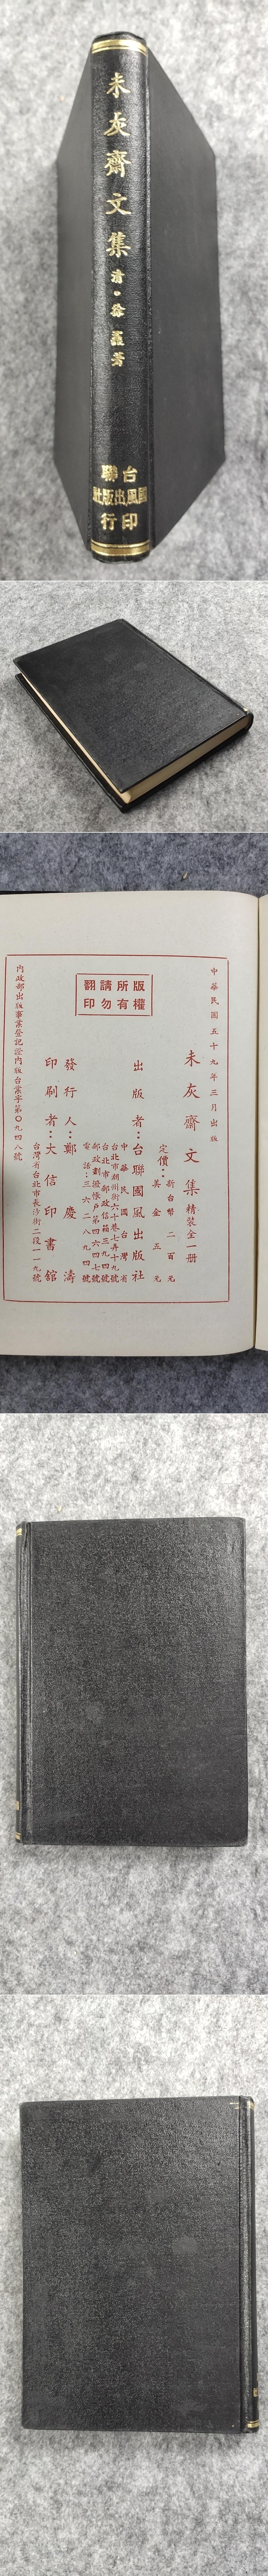 未灰齋文集
清·徐鼒著
台聯
國風出版社
印行
中華民國五十九年三月出版
未灰齋文集 精裝全一冊
定價：新台幣二百元
美金五元
出版者：台聯國風出版社
中華民國台灣省
台北市潮州街六十巷七弄十六號
台北市郵政信箱三九四號
郵政劃撥帳戶第四六四七號
電話：三六二八九四號
版權所有
請勿翻印
發行人：鄭慶濤
印刷者：大信印書館
台灣省台北市長沙街二段一一九號
內政部出版事業登記證內版台業字第〇九四八號